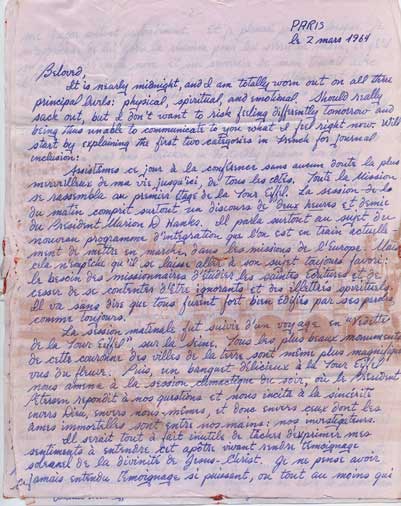 PARIS
le 2 mars 1961
Beloved,
It is nearly midnight, and I am totally worn out on all three
principal levels: physical, spiritual, and emotional. Should really
sack out, but I don't want to risk feeling differently tomorrow and
being thus unable to communicate to you what I feel right now. Will
start by explaining the first two categories in French for journal
inclusion:
Assistâmes ce jour à la conférence sans aucun doute la plus
merveilleux de ma vie jusqu'ici, de tous les côtés. Toute la Mission
se rassembla au premier étage de la Tour Eiffel. La session de
du matin comprit surtout un discours de deux heures et demie
du Président Marion D. Hanks. Il parla surtout au sujet du
nouveau programme d'intégration que l'on est en train actuelle-
ment de mettre en marche, dans les missions de l'Europe. Mais
cela n'empêcha qu'il se laisse aller à son sujet toujours favori:
le besoin des missionnaires d'étudier les saintes écritures et de
cesser de se contenter d'être ignorants et des illettrés spirituels.
Il va sans dire que tous furent fort bien édifiés par ses paroles
comme toujours.
La session matinale fut suivie d'un voyage en "Vedette
de la Tour Eiffel" sur la Seine. Tous les plus beaux monuments
de cette couronne des villes de la terre sont même plus magnifiques
vus du fleuve. Puis, un banquet délicieux à la Tour Eiffel
nous amena à la session climactique du soir, où le Président
Petersen répondit à nos questions et nous incita à la sincérité
envers Dieu, envers nous-mêmes, et donc envers ceux dont les
âmes immortelles sont entre nos mains: nos investigateurs.
Il serait tout à fait inutile de tâcher d'exprimer mes
sentiments à entendre cet apôtre vivant rendre témoignage
solennel de la divinité de Jésus-Christ. Je ne pense avoir
jamais entendu témoignage si puissant, ou tout au moins qui